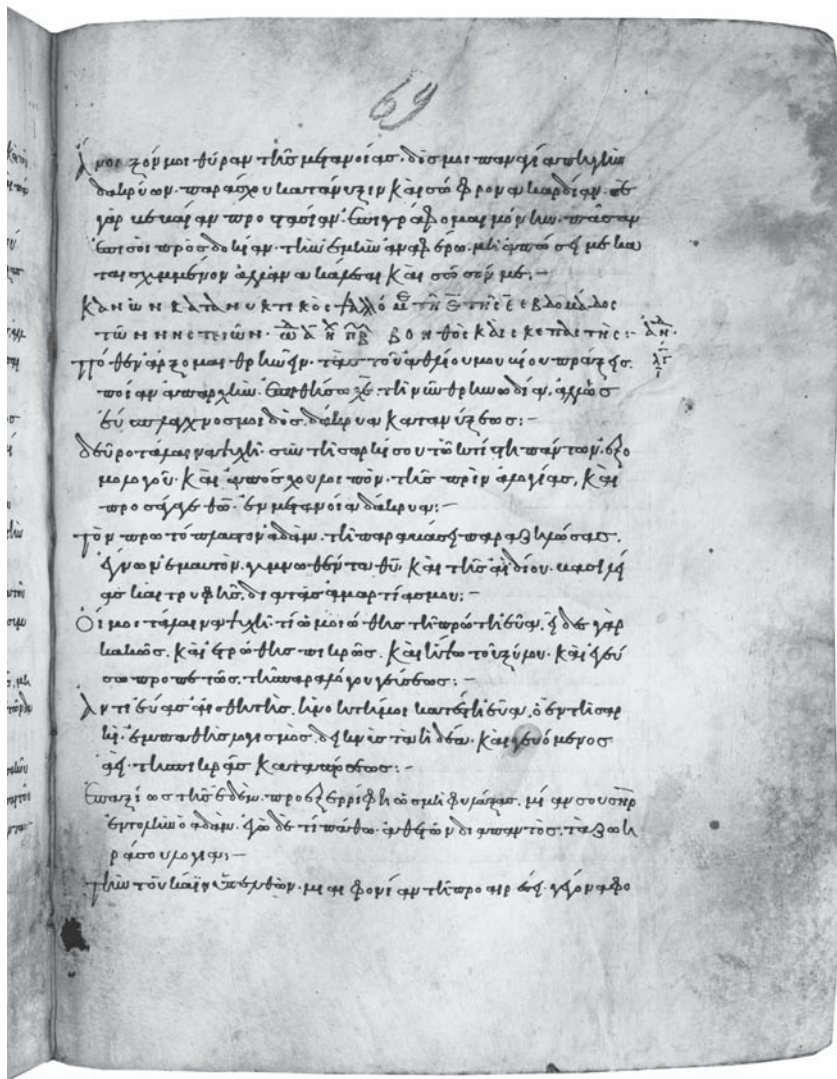 69
Ἄνοιξόν μοι θύραν τῆς μετανοίας. δός μοι παναγία πηγὴν
δακρύων. παράσχου κατάνυξιν καὶ σώφρονα καρδίαν. σὲ
γὰρ προστασίαν. ἐπιγράφομαι μόνην. πᾶσαν
ἐπὶ σοὶ προσδοκίαν. τὴν ἐμὴν ἀναφέρω. μὴ ἀπώσῃ με κα
ταισχυμμένον ἀλλὰ ἀνακάλεσαι καὶ σῶσόν με:–
Κανὼν κατανυκτικὸς τῇ ε̄ τῆς ε̄ ἑβδομάδος
τῶν νηστειῶν. ᾠδ ᾱ ἦχ πλ β βοηθὸς καὶ σκεπαστής:–
Πόθεν ἄρξομαι θρηνεῖν. τὰς τοῦ ἀθλίου μου βίου πράξεις.
ποίαν ἀπαρχὴν. ἐπιθήσω χε. τῇ νῦν θρηνωδίᾳ. ἀλλ' ὡς
εὔσπλαχνός μοι δὸς. δάκρυα κατανύξεως:–
Δεῦρο τάλαινα ψυχὴ. σὺν τῇ σαρκί σου τῷ κτίστῃ πάντων. ἐξο
μολογοῦ. καὶ ἀπόσχου λοιπὸν. τῆς πρὶν ἀλογίας. καὶ
προσάγαγε θῶ. ἐν μετανοίᾳ δάκρυα:–
Τὸν πρωτόπλαστον ἀδὰμ. τῇ παραβάσει παραζηλώσας.
ἔγνων ἐμαυτὸν. γυμνωθέντα θῦ. καὶ τῆς ἀϊδίου. βασιλεί
ας καὶ τρυφῆς. διὰ τὰς ἁμαρτίας μου:–
Οἴμοι τάλαινα ψυχὴ. τί ὡμοιώθης τῇ πρώτῃ εὔα. εἶδες γὰρ
κακῶς. καὶ ἐτρώθης πικρῶς. καὶ ἥψω τοῦ ξύλου. καὶ ἐγεύ
σω προπετῶς. τῆς παραλόγου γεύσεως:–
Ἀντὶ εὔας αἰσθητῆς. ἡ νοητή μοι κατέστη εὔα. ὁ ἐν τῇ σαρ
κὶ. ἐμπαθὴς λογισμὸς. δεικνὺς τὰ ἡδέα. καὶ γευόμενος
ἀεὶ. τῆς πικρᾶς καταπόσεως:–
Ἐπαξίως τῆς ἐδὲμ. προεξερρίφη ὡς μὴ φυλάξας. μίαν σου σηρ
ἐντολὴν ὁ ἀδὰμ. ἐγὼ δὲ τί πάθω. ἀθετῶν διαπαντὸς. τὰ ζωη
ρά σου λόγια:–
Τὴν τοῦ κάϊν ὑπελθὼν. μιαιφονίαν τῇ προαιρέσει. γέγονα φο